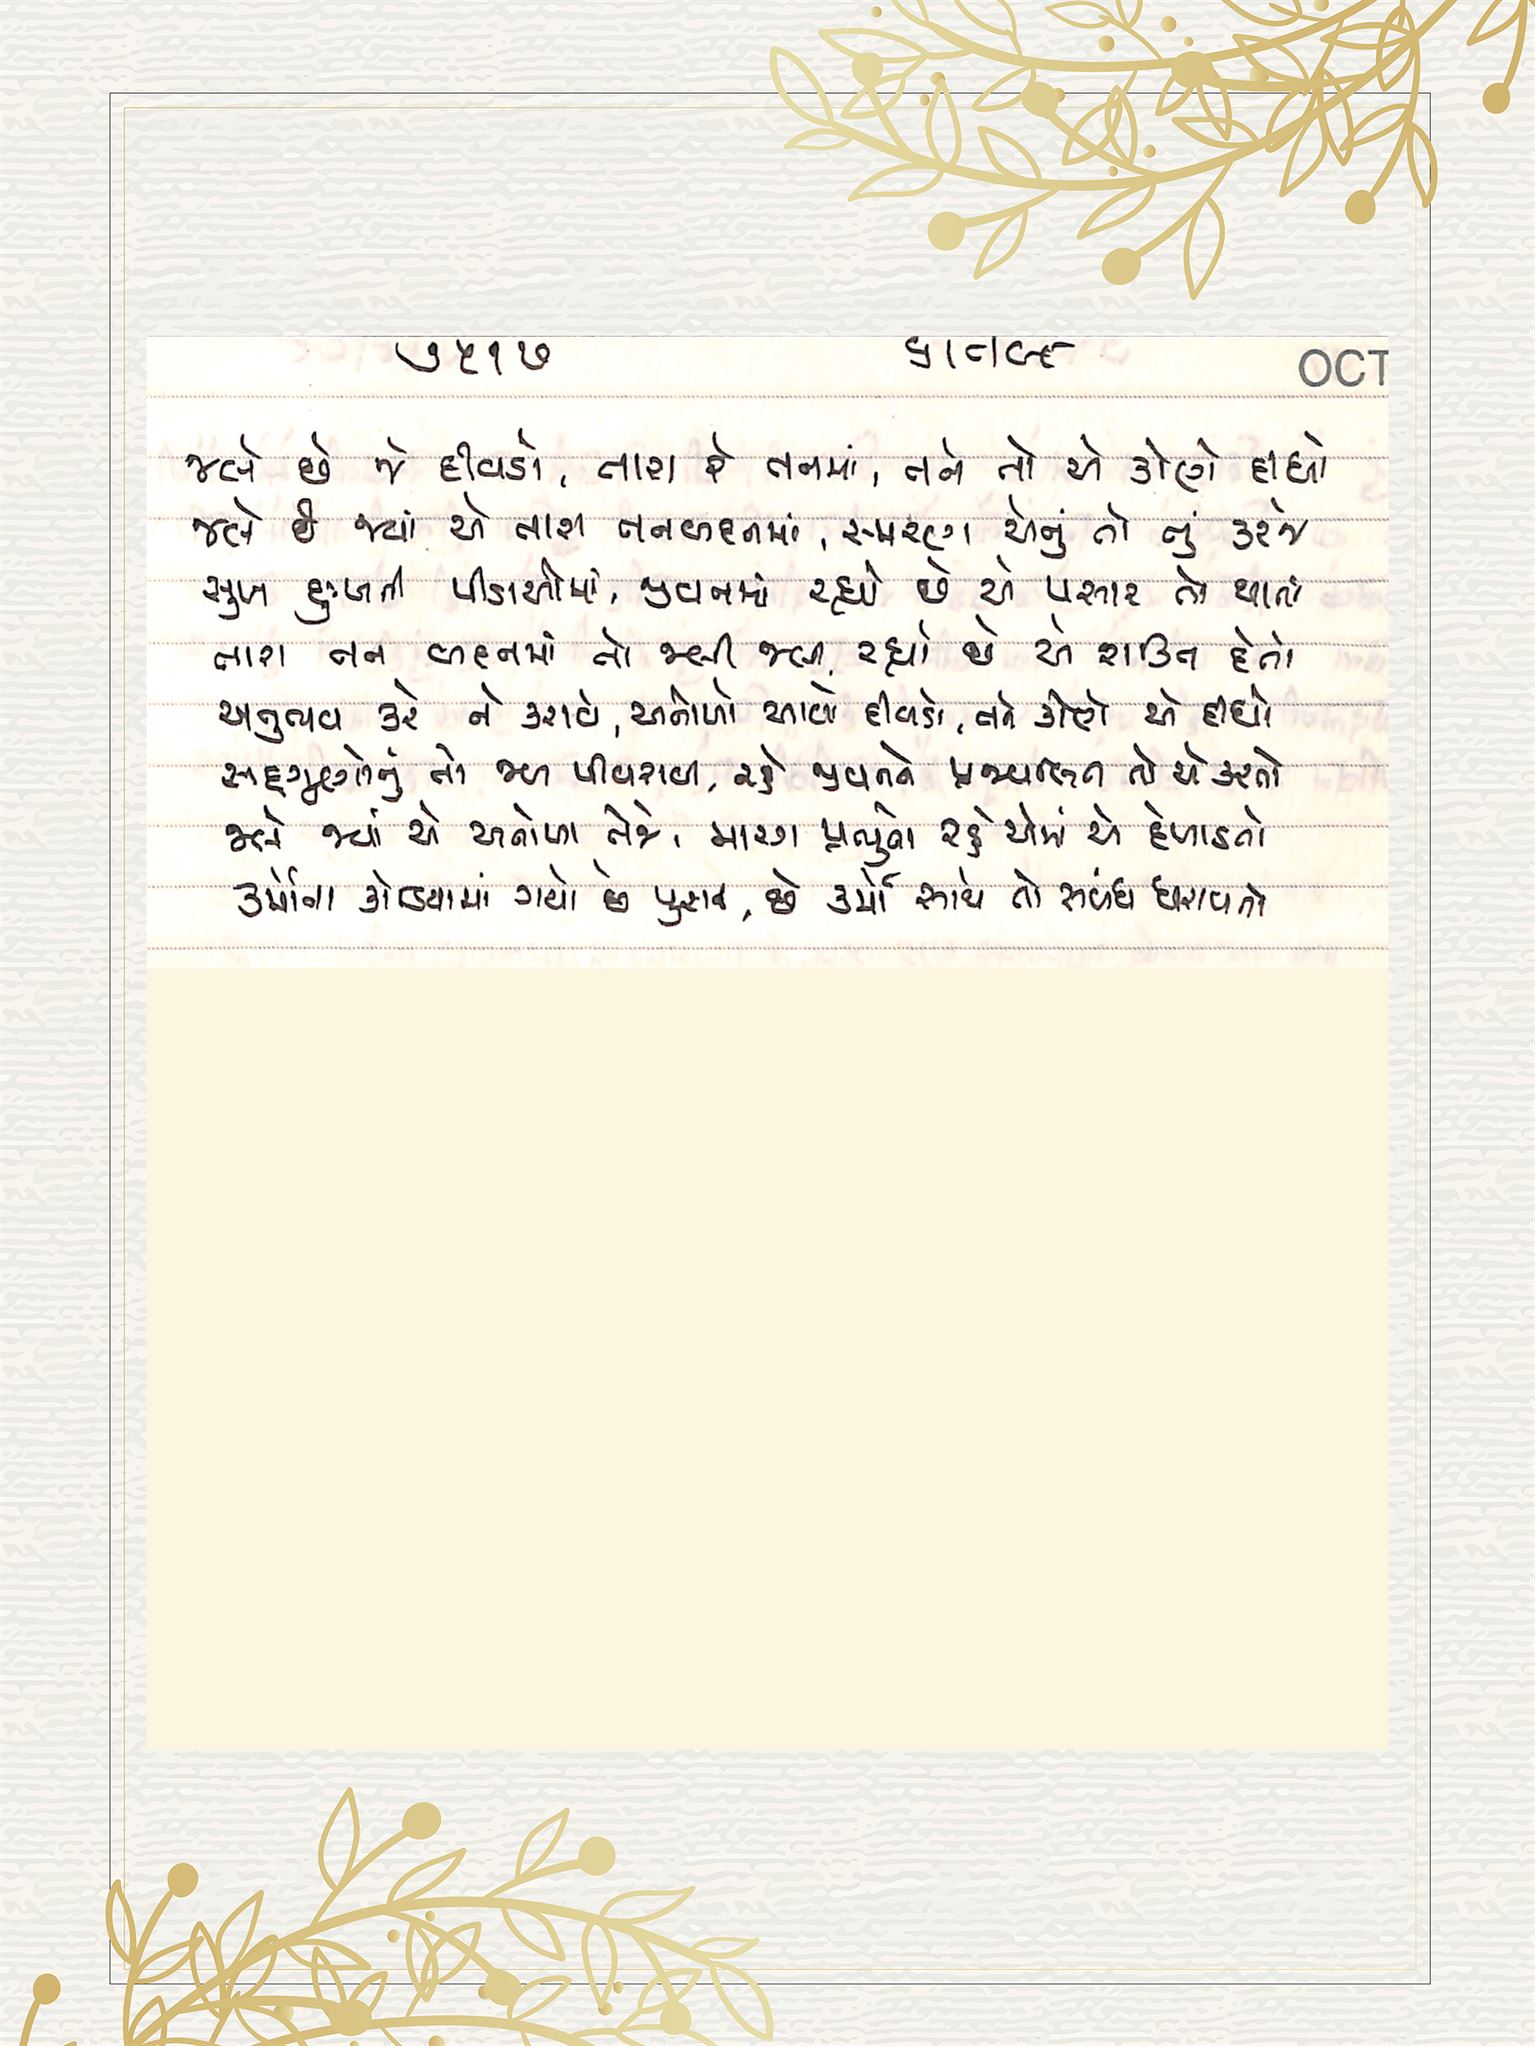 ૭૫૧૭ OCT
જલે છે જે દીવડો, તારા રે તનમાં, તને તો એ કોણે દીધો
જલે છે જ્યાં એ તારા તનબદનમાં, સ્મરણ એનું તો તું કરજે
સુખ દુઃખની પીડાઓમાં, જીવનમાં રહ્યો છે એ પસાર તો થાતો
તારા તન બદનમાં તો જલી જલી, રહ્યો છે એ શક્તિ દેતો
અનુભવ કરે ને કરાવે, અનોખો આવો દીવડો, તને કોણે એ દીધો
સદ્ગુણોનું તો જળ પીવરાવી, રહે જીવનને પ્રજ્વલિત તો એ કરતો
જલે જ્યાં એ અનોખા તેજે, મારગ પ્રભુનો રહે એમાં એ દેખાડતો
કર્મોના કોઠામાં ગયો છે પુરાઈ, છે કર્મો સાથે તો સબંધ ધરાવતો